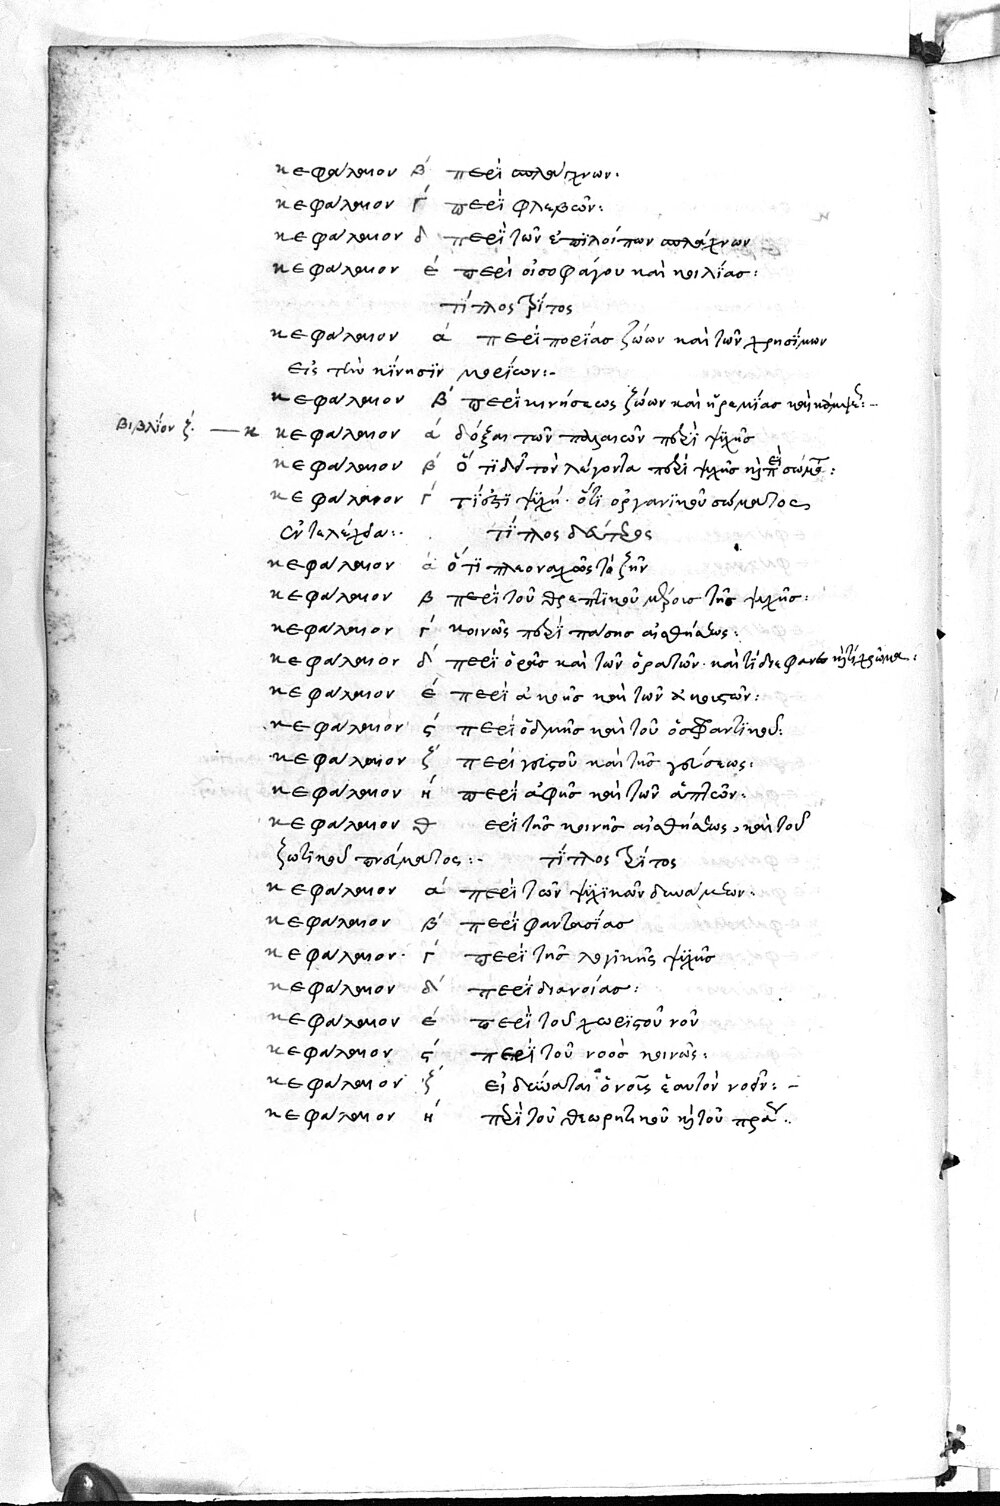 κεφάλαιον β´ περὶ σπλάγχνων·
κεφάλαιον γ´ περὶ φλεβῶν:
κεφάλαιον δ περὶ τῶν ἐπιλοίπων σπλάχνων
κεφάλαιον ε´ περὶ οἰσοφάγου καὶ κοιλίας:
τίτλος τρίτος
κεφάλαιον α´ περὶ πορείας ζώων καὶ τῶν χρησίμων
εἰς τὴν κίνησιν μορίων:-
κεφάλαιον β´ περὶ κινήσεως ζώων καὶ ἠρεμίας καὶ
βιβλίον ζ· — κεφάλαιον α´ δόξαι τῶν παλαιῶν περὶ ψυχῆς
κεφάλαιον β´ ὅτι δεῖ τὸν λέγοντα περὶ ψυχῆς καὶ περὶ σώματος:
κεφάλαιον γ´ τί ἐστι ψυχή· ὅτι ὀργανικοῦ σώματος
ἐντελέχεια:· τίτλος δεύτερος
κεφάλαιον α´ ὅτι πλεοναχῶς τὸ ζῆν
κεφάλαιον β περὶ τοῦ θρεπτικοῦ μέρους τῆς ψυχῆς:
κεφάλαιον γ´ κοινῶς περὶ πάσης αἰσθήσεως:
κεφάλαιον δ´ περὶ ὁράσεως καὶ τῶν ὁρατῶν· καὶ τί διαφανὲς καὶ τί χρῶμα:
κεφάλαιον ε´ περὶ ἀκοῆς καὶ τῶν ἀκουστῶν:
κεφάλαιον ς´ περὶ ὀδμῆς καὶ τοῦ ὀσφαντικοῦ:
κεφάλαιον ζ´ περὶ γευστοῦ καὶ τῆς γεύσεως:
κεφάλαιον η´ περὶ ἁφῆς καὶ τῶν ἁπτῶν:
κεφάλαιον θ ερὶ τῆς κοινῆς αἰσθήσεως, καὶ τοῦ
ζωτικοῦ πνεύματος:- τίτλος τρίτος
κεφάλαιον α´ περὶ τῶν ψυχικῶν δυνάμεων:
κεφάλαιον β´ περὶ φαντασίας
κεφάλαιον γ´ περὶ τῆς λογικῆς ψυχῆς
κεφάλαιον δ´ περὶ διανοίας:
κεφάλαιον ε´ περὶ τοῦ χωριστοῦ νοῦ
κεφάλαιον ς´ περὶ τοῦ νοὸς κοινῶς:
κεφάλαιον ζ´ εἰ δύναται ὁ νοῦς ἑαυτὸν νοεῖν:-
κεφάλαιον η´ περὶ τοῦ θεωρητικοῦ καὶ τοῦ πρακ: